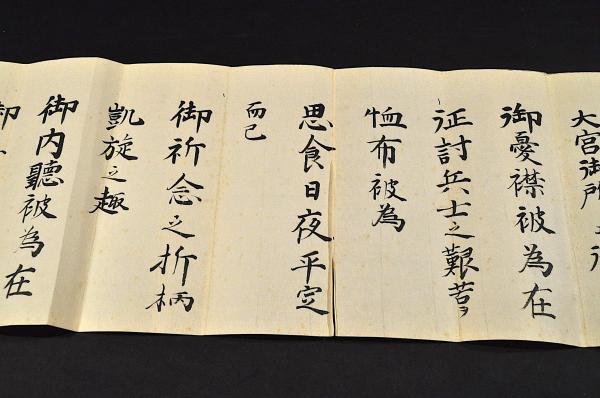 大宮御所
御憂襟被為在
征討兵士之艱苦ヲ
恤布被為
思食日夜平定
而已
御祈念之折柄
凱旋之趣
御内聴被為在